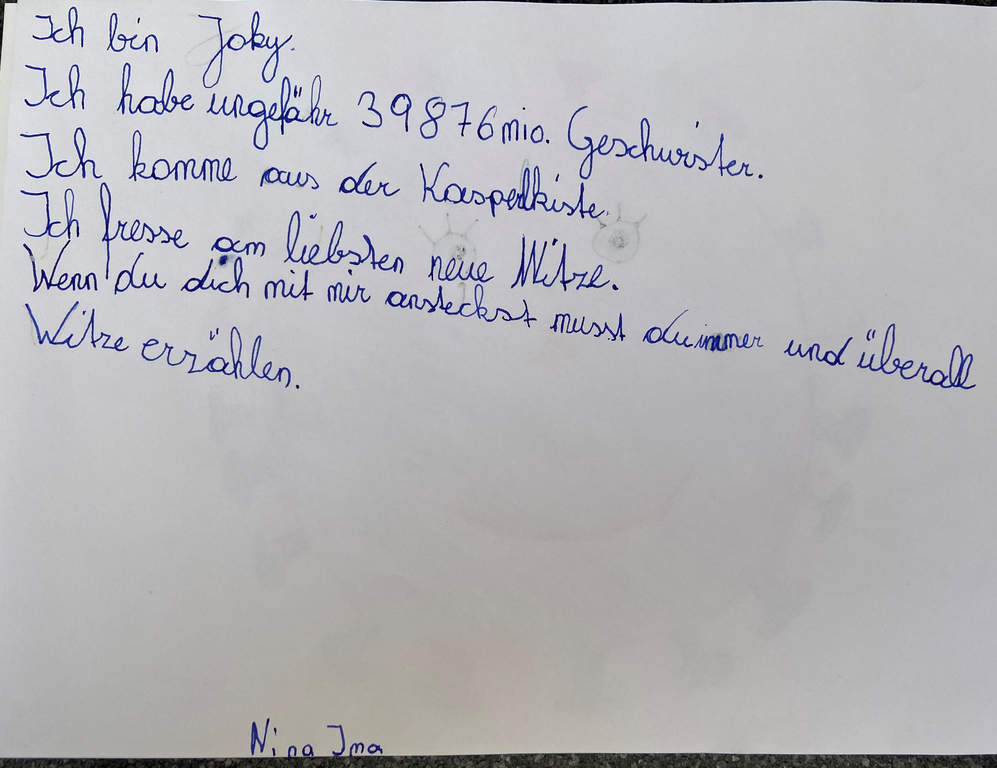 Ich bin Joky.
Ich habe ungefähr 39876mio. Geschwister.
Ich komme aus der Kasperlkiste.
Ich fresse am liebsten neue Witze.
Wenn du dich mit mir ansteckst musst du immer und überall
Witze erzählen.
Nina Ima